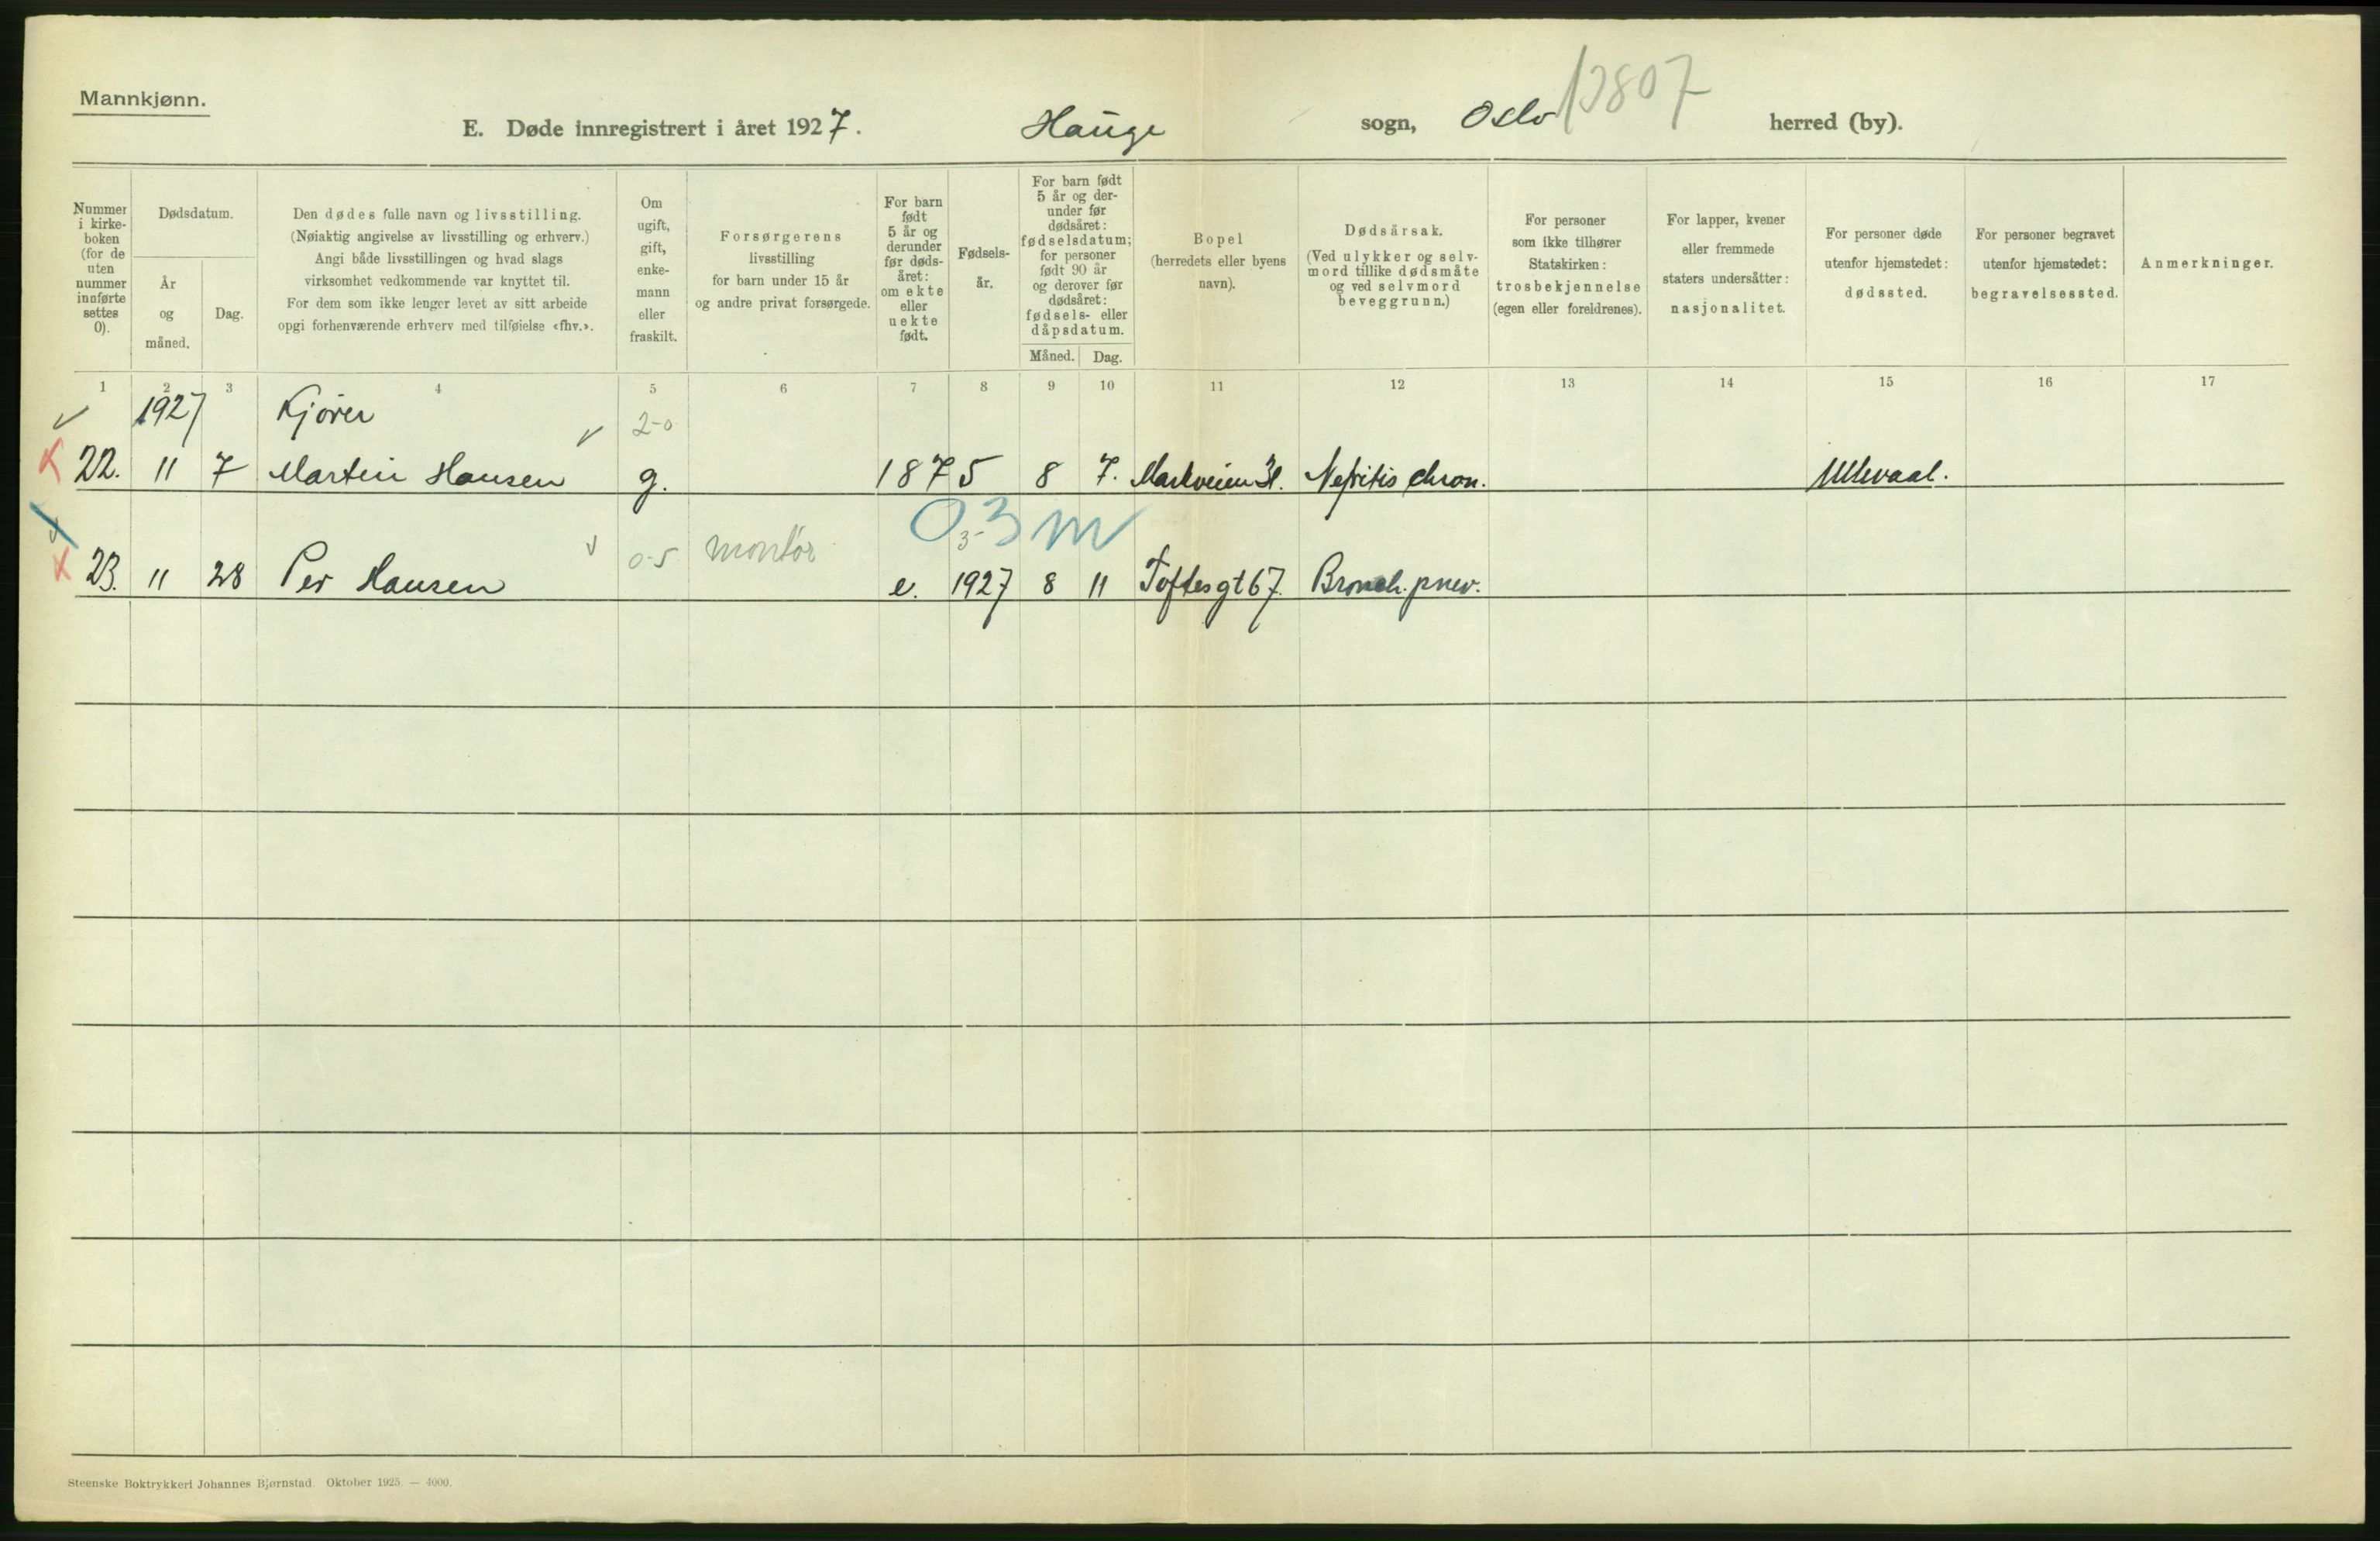 Mannkjønn.
E. Døde innregistrert i året 1927. Hauge sogn, Oslo herred (by).
13807
Nummer i kirkeboken (for de uten nummer innførte settes 0).
Dødsdatum.
År og måned.
Dag.
Den dødes fulle navn og livsstilling.
(Nøiaktig angivelse av livsstilling og erhverv.)
Angi både livsstillingen og hvad slags
virksomhet vedkommende var knyttet til.
For dem som ikke lenger levet av sitt arbeide
opgi forhenværende erhverv med tilføielse «fhv.».
Om ugift, gift, enkemann eller fraskilt.
Forsørgerens
livsstilling
for barn under 15 år
og andre privat forsørgede.
For barn født 5 år og derunder før dødsåret: om ekte eller uekte født.
Fødselsår.
For barn født 5 år og derunder før dødsåret: fødselsdatum; for personer født 90 år og derover før dødsåret: fødsels- eller dåpsdatum.
Måned. Dag.
Bopel
(herredets eller byens
navn).
Dødsårsak.
(Ved ulykker og selvmord tillike dødsmåte og ved selvmord beveggrunn.)
For personer
som ikke tilhører
Statskirken:
trosbekjennelse
(egen eller foreldrenes).
For lapper, kvener
eller fremmede
staters undersåtter:
nasjonalitet.
For personer døde
utenfor hjemstedet:
dødssted.
For personer begravet
utenfor hjemstedet:
begravelsessted.
Anmerkninger.
1 2 3 4 5 6 7 8 9 10 11 12 13 14 15 16 17
1927 Kjører 2-0
22. 11 7 Martin Hansen g. 1875 8 7. Markveien 31. Nefritis chron. Ullevaal.
03 m
3-
0-5 montør
23. 11 28 Per Hansen e. 1927 8 11 Toftesgt 67. Bronch. pnev.
Steenske Boktrykkeri Johannes Bjørnstad. Oktober 1925. — 4000.